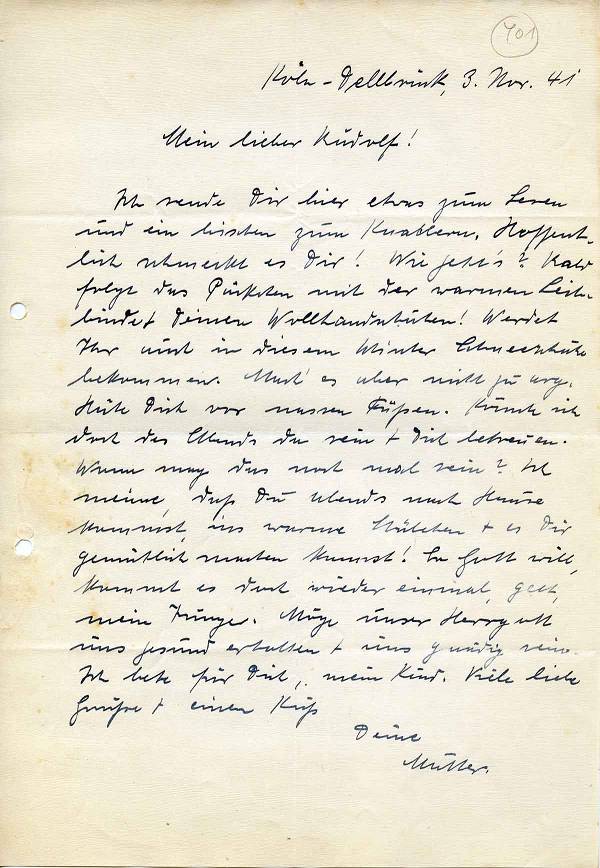 401
Köln-Dellbrück, 3. Nov. 41
Mein lieber Rudolf!
Ich sende Dir hier etwas zum Lesen
und ein bischen zum Knabbern. Hoffent-
lich schmeckt es Dir! Wie geht's? Bald
folgt das Päckchen mit der warmen Leib-
binde + Deinen Wollhandschuhen! Werdet
Ihr auch in diesem Winter Schneeschuhe
bekommen. Mach' es aber nicht zu arg.
Hüte Dich vor nassen Füßen. Könnte ich
doch des Abends da sein + Dich betreuen.
Wann mag das noch mal sein? Ich
meine, daß Du abends nach Hause
kommst, ins warme Stübchen + es Dir
gemütlich machen kannst! So Gott will,
kommt es doch wieder einmal, gelt,
mein Junge. Möge unser Herrgott
uns gesund erhalten + uns gnädig sein.
Ich bete für Dich, mein Kind. Viele liebe
Grüße + einen Kuß
Deine
Mutter.